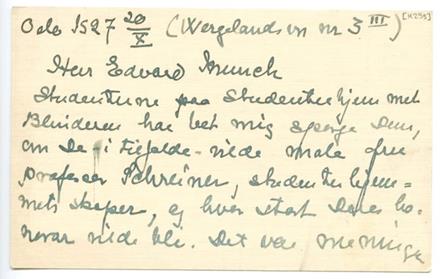 Oslo 1927 20/X (Wergelandsvn nr 3 III) [K295]
Herr Edvard Munch
Studenterne paa Studenterhjemmet
Blindern har bet mig spørge Dem,
om De i tilfælde vilde male fru
professor Schreiner, studenterhjem=
mets skaper, og hvor stort Deres ho-
norar vilde bli. Det var meningen